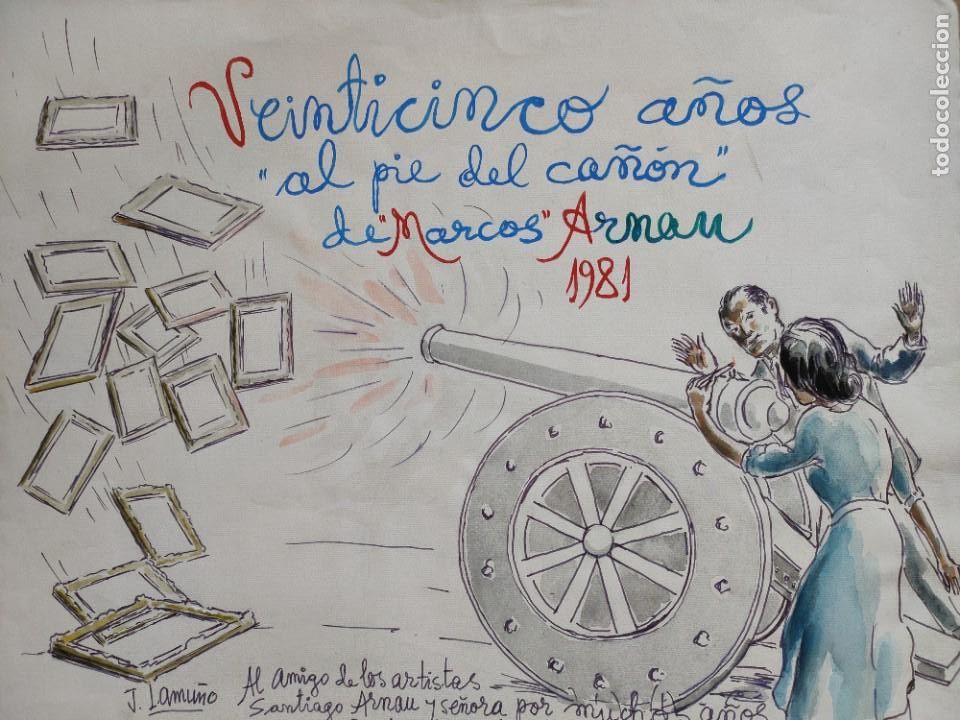 Veinticinco años
"al pie del cañón"
de "Marcos" Arnau
1981
J. Lamuño
Al amigo de los artistas
Santiago Arnau y señora por muchos años
todocoleccion